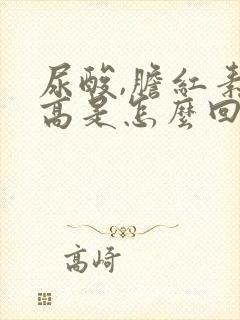 尿酸,膽紅素
高是怎麼回
高崎